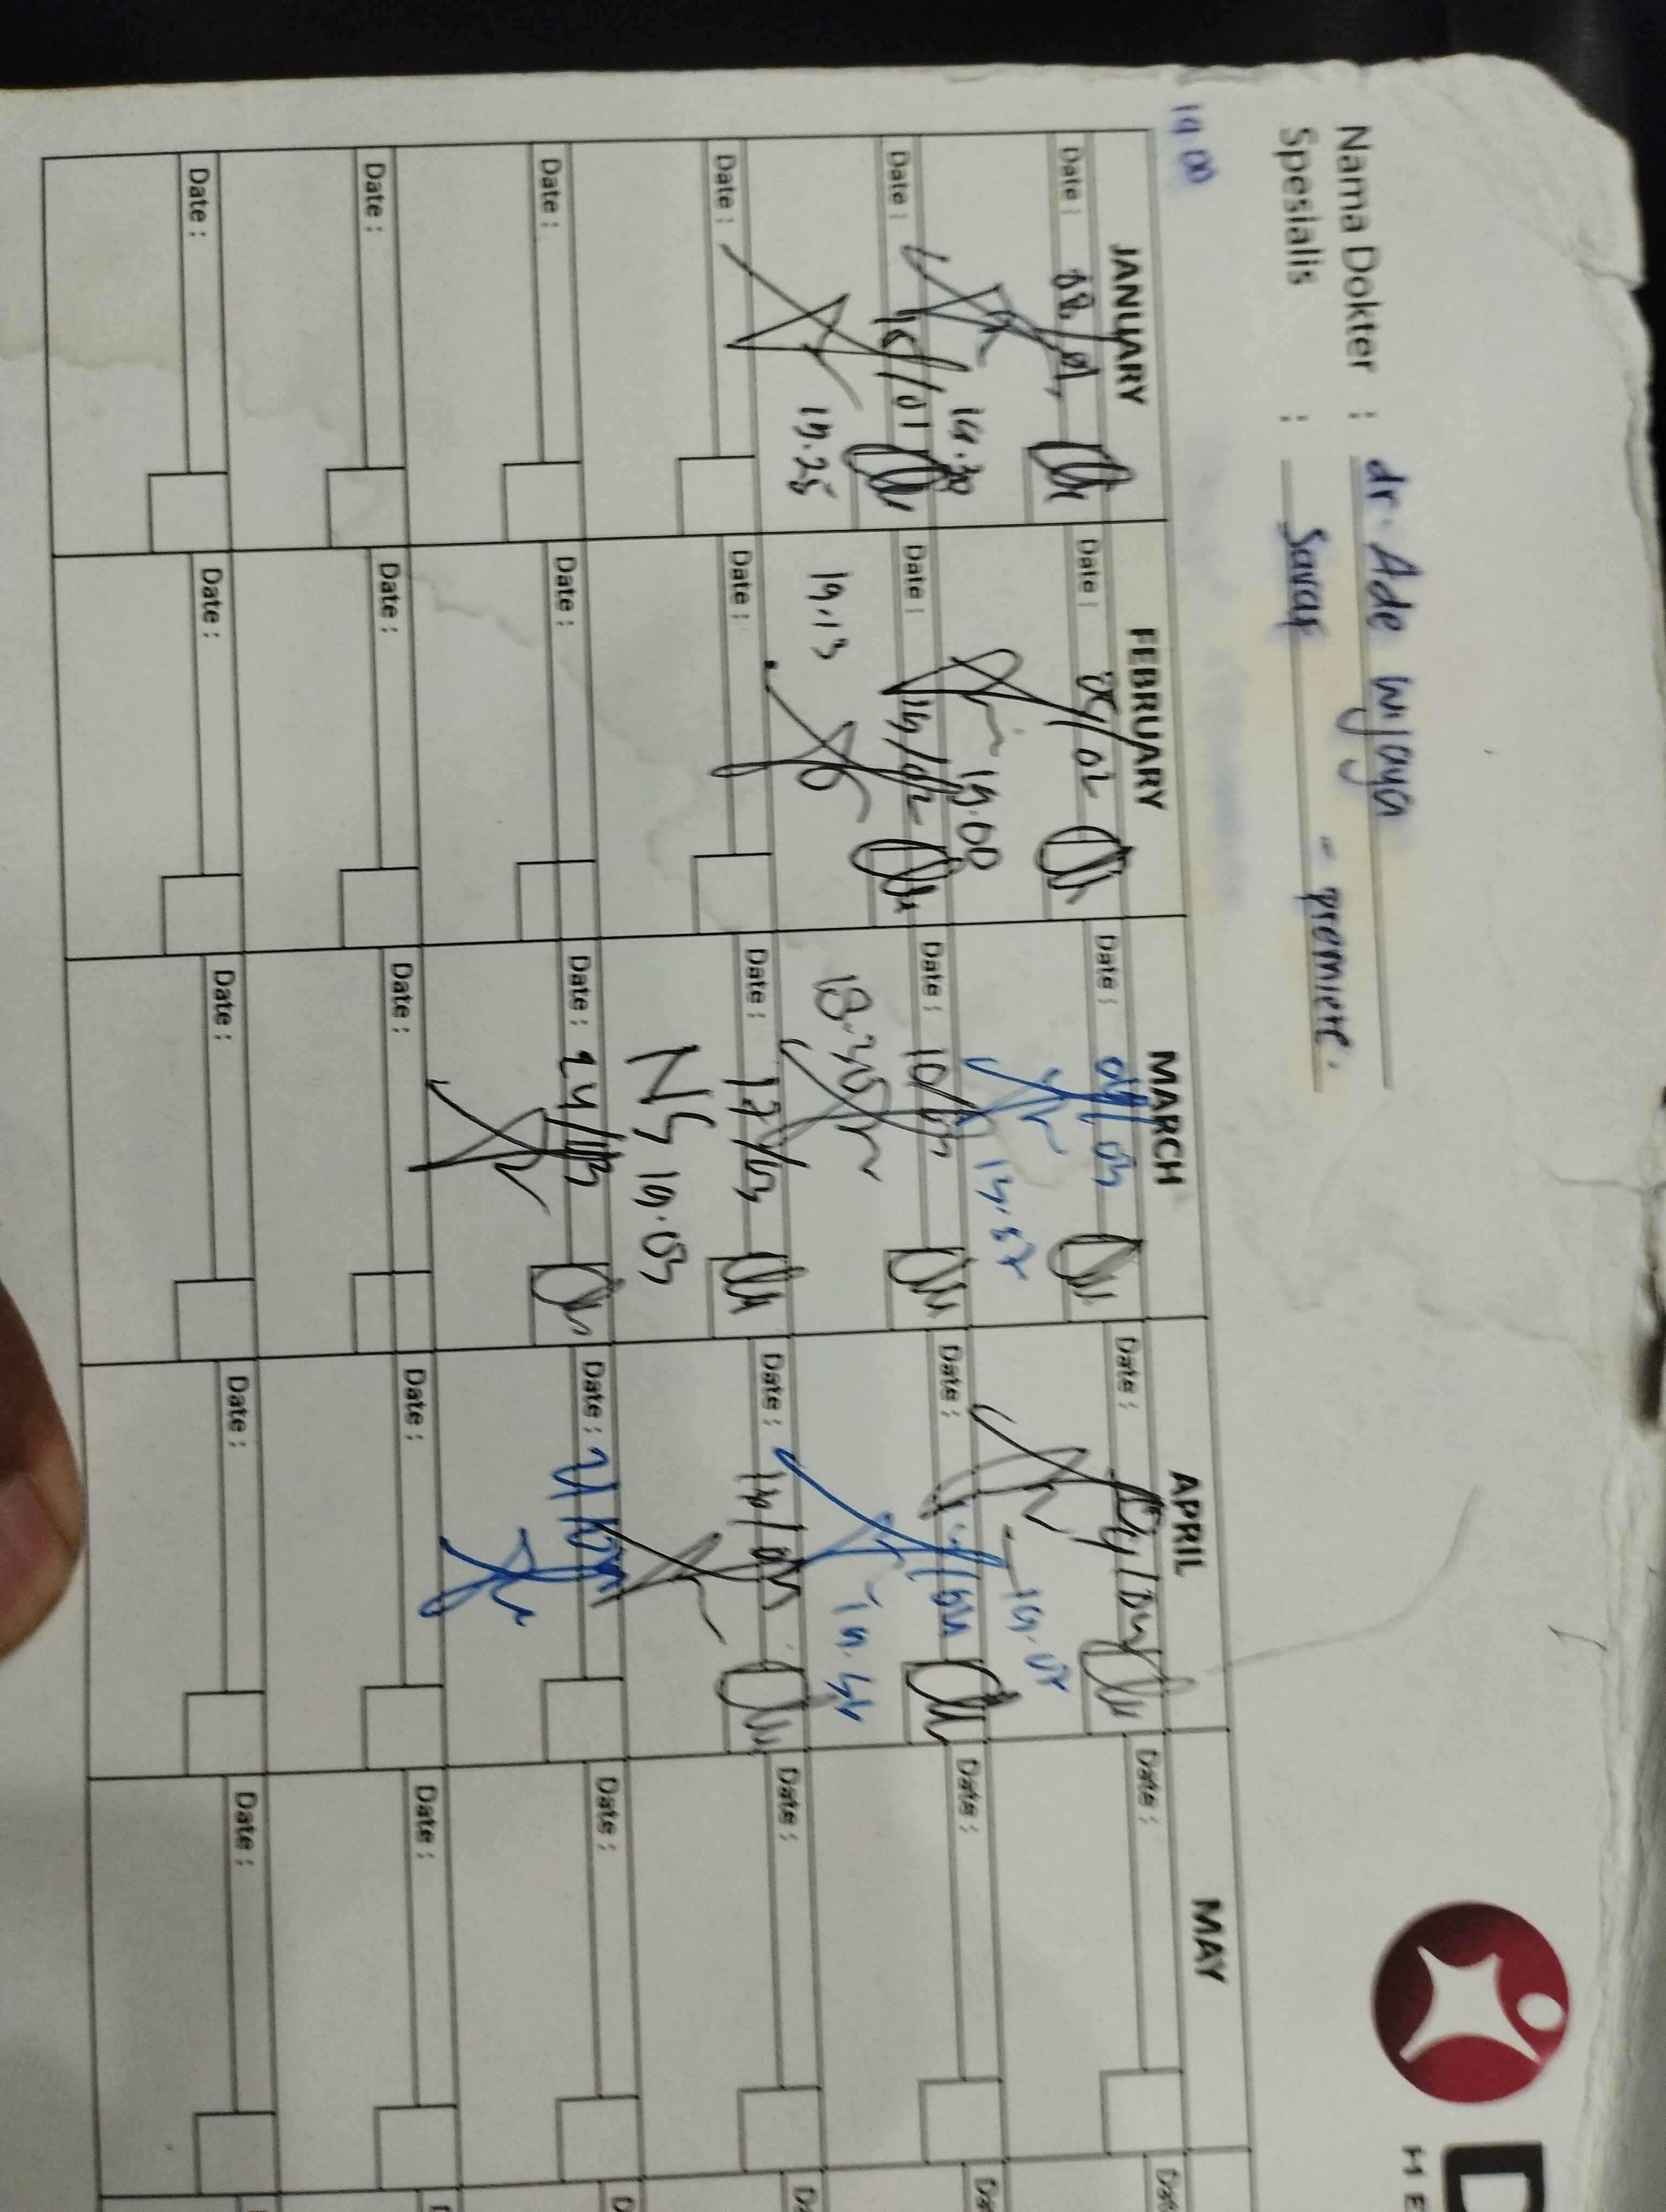 Nama Dokter : dr. Ade Wijaya
Spesialis : Saraf - premiere.
19 00
JANUARY FEBRUARY MARCH APRIL MAY
Date : 08 / 01 Date : 05/02 Date : 04/03 Date : 04/04 Date : Date
19.30 19.00 19.57 19.07
Date : 15/01 Date : 19/02 Date : 10/03 Date : Date : Date
19.25 19.13 18.25
Date : Date : Date : 17/03 Date : 14/04 Date : Date
NS 19.03
Date : Date : Date : 24/03 Date : 21/04 Date : D
Date : Date : Date : Date : Date :
Date : Date : Date : Date : Date :
D
HE